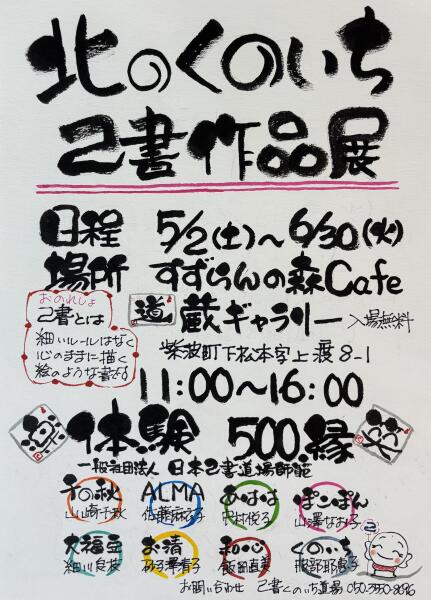 北のくのいち
己書作品展
日程 5/2(土)〜6/30(火)
場所 すずらんの森Cafe
道 蔵ギャラリー 入場無料
紫波町下松本字上渡8-1
おのれしょ
己書とは
細いルールはなく
心のままに描く
絵のような書だよ
11:00〜16:00
体験 500縁
一般社団法人 日本己書道場師範
千の秋 ALMA あはは ぽこぽん
山崎千秋 佐藤麻衣子 沢村悦子 山澤なお子
大福豆 お清 和心 くのいち
細川良枝 砂子澤有子 飯田直美 服部耶恵子
お問い合わせ 己書くのいち道場 050-3550-8696